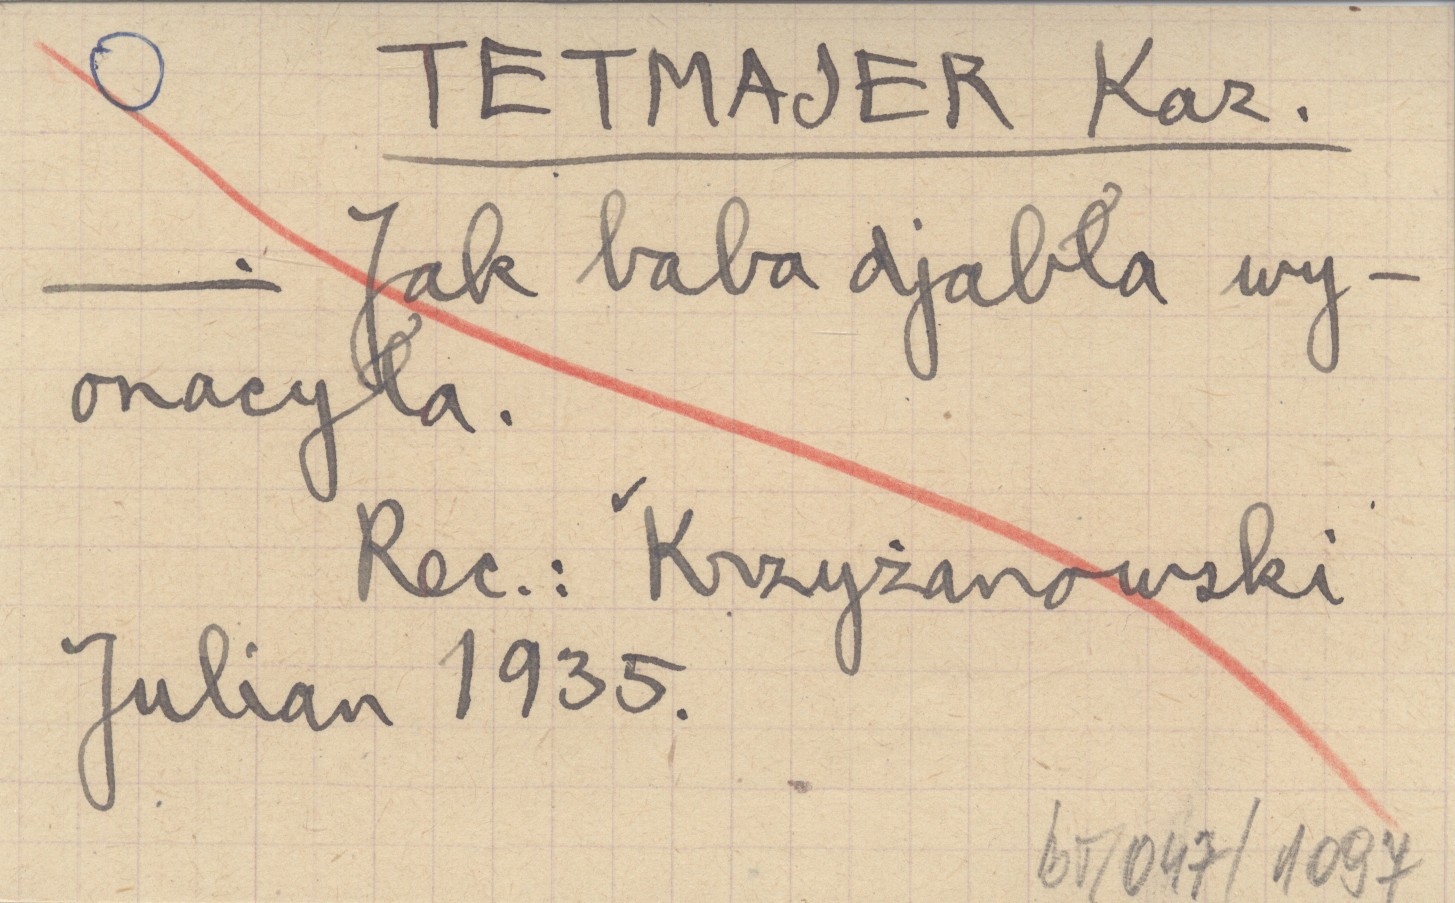 TETMAJER Kaz.
— Jak baba djabła wy-
onacyła.
Rec.: Krzyżanowski
Julian 1935.
bT/047/1097